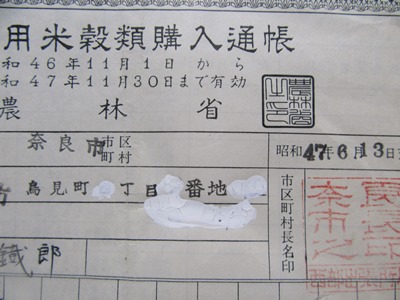 用米穀類購入通帳
和46年11月1日から
和47年11月30日まで有効
農林省
農林省之印
奈良市 市区町村
昭和47年6月13日
鳥見町 丁目 番地
市区町村長名印
鐵郎